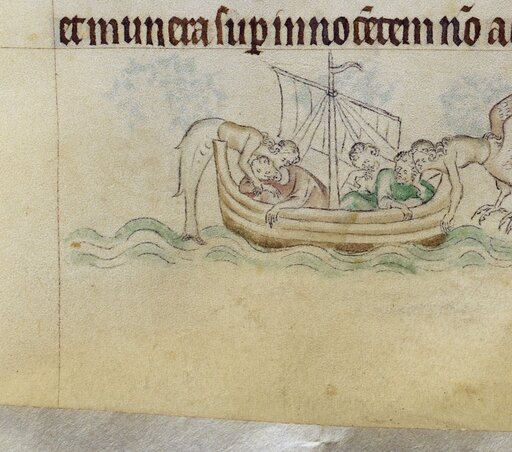 et munera sup innocētem nō a